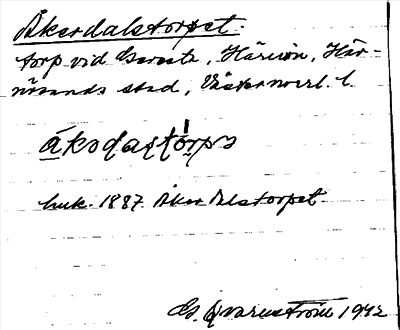 Åkerdalstorpet.
torp vid Geresta, Härnön, Här-
nösands stad, Västernorrl. l.
åkɔdaʂtórps
huk. 1887 Åkerdalstorpet.
G. Qvarnström 1942